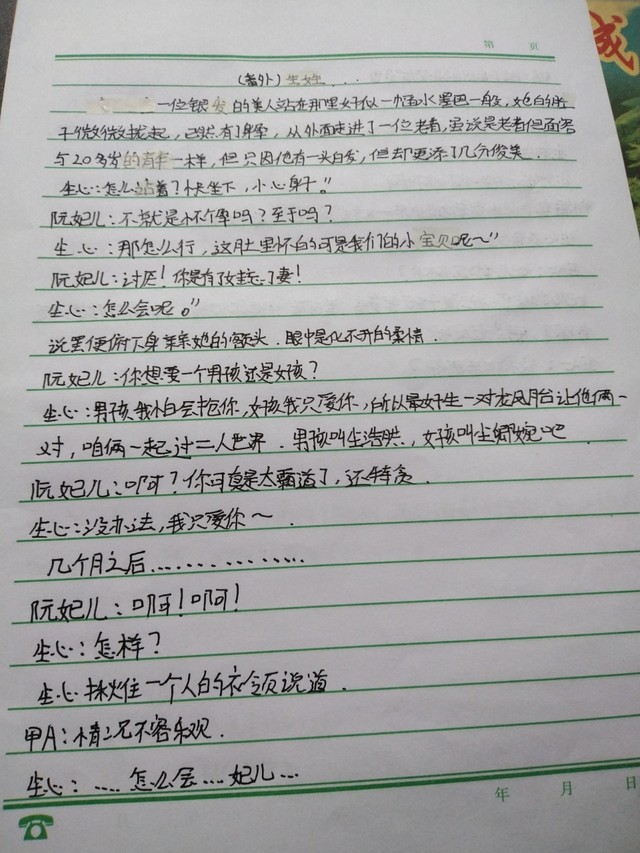 第 页
(番外) 生娃...
一位银发的美人站在那里好似一幅水墨画一般,她的肚
子微微拢起,已然有了身孕,从外面走进了一位老者,虽说是老者但面容
与20多岁的青年一样,但只因他有一头白发,但却更添了几分俊美.
尘心:怎么站着?快坐下,小心身子。"
阮妃儿:不就是怀个孕吗?至于吗?
尘心:那怎么行,这肚里怀的可是我们的小宝贝呢~"
阮妃儿:讨厌!你是有了娃忘了妻!
尘心:怎么会呢。"
说罢便俯下身亲亲她的额头.眼中是化不开的柔情.
阮妃儿:你想要一个男孩还是女孩?
尘心:男孩我怕会抢你,女孩我只爱你,所以最好生一对龙凤胎让他俩一
对,咱俩一起过二人世界.男孩叫尘浩然,女孩叫尘卿婉吧.
阮妃儿:啊?你可真是太霸道了,还特贪.
尘心:没办法,我只爱你~.
几个月之后..............
阮妃儿:啊!啊!
尘心:怎样?
尘心揪住一个人的衣领说道.
甲A:情况不容乐观.
尘心:....怎么会...妃儿...
年 月 日
成